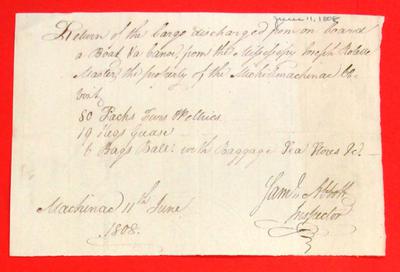 June 11, 1808
Return of the Cargo discharged from on board
a Boat & a Canoe, from the Mississippi Joseph Rolette
Master, the property of the Michilimackinac Co.
80 Packs Furs & Peltries
19 Kegs Grease
6 Bags with Baggage &c
Saml. Abbott
Inspector
Mackinac 11th June
1808.